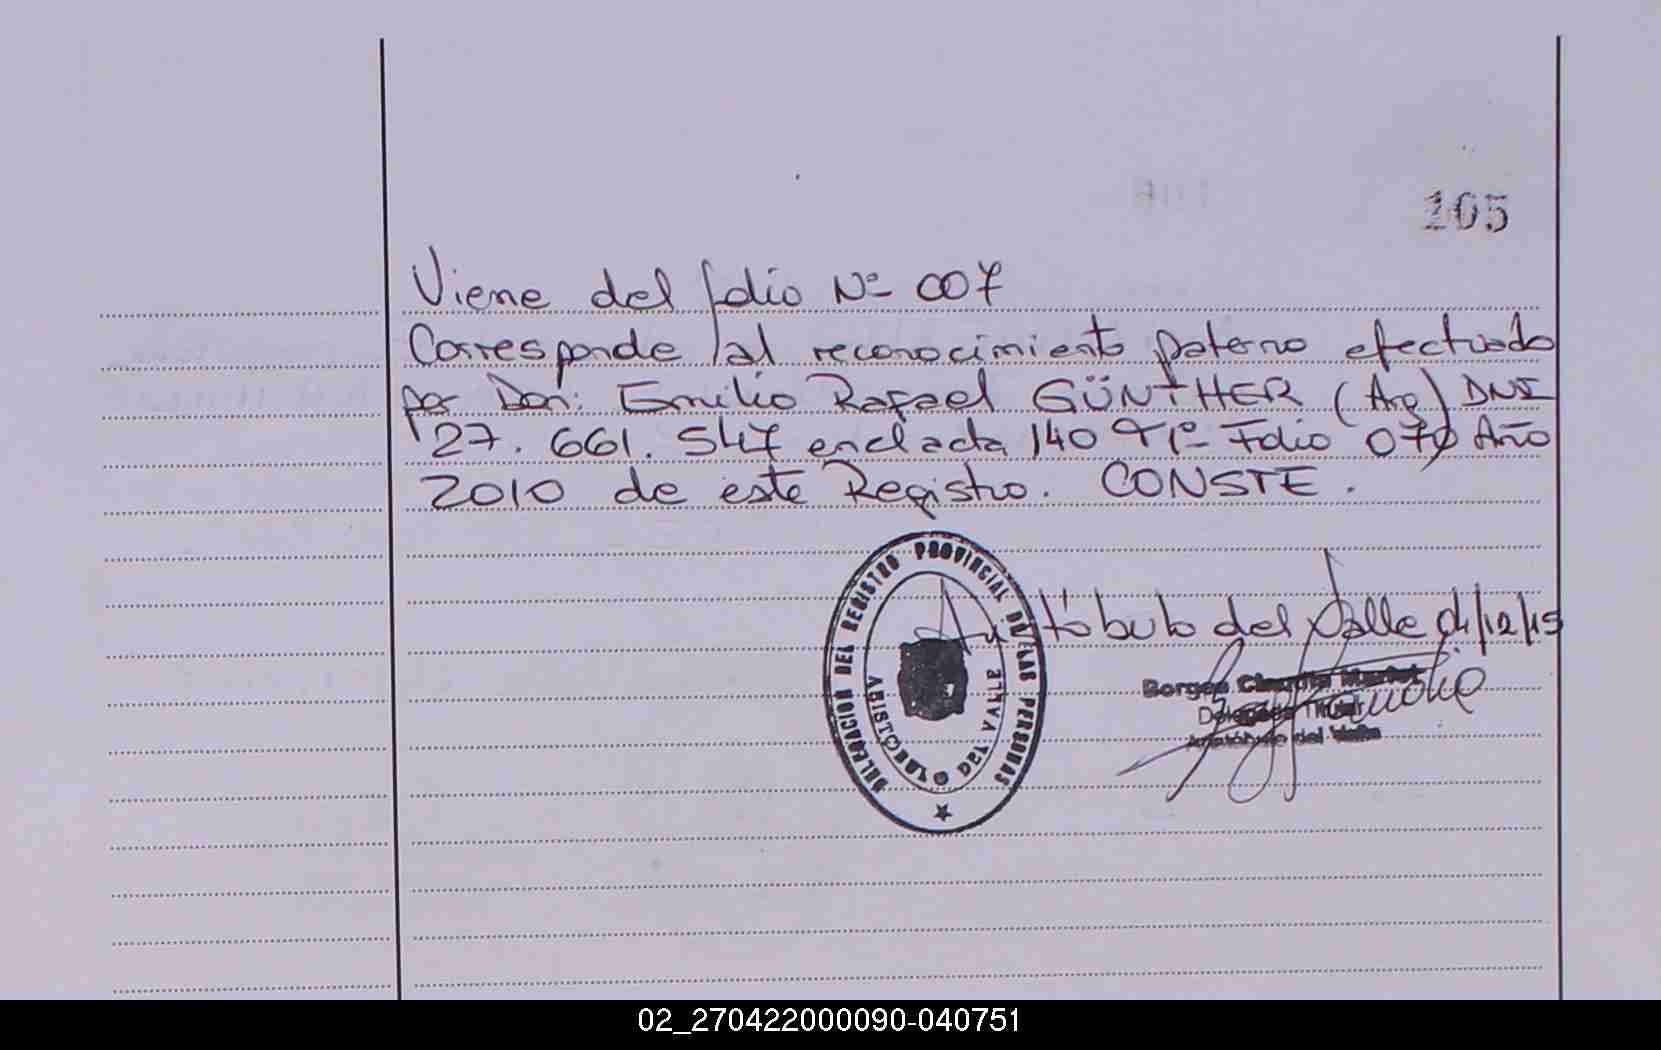 105
Viene del folio Nº 007
Corresponde al reconocimiento paterno efectuado
por Don: Emilio Rafael GÜNTHER (Arg) DNI
27.661.547 en el acta 140 Tº Folio 070 Año
2010 de este Registro. CONSTE.
DELEGACION DEL REGISTRO PROVINCIAL DE LAS PERSONAS
ARISTOBULO DEL VALLE
Aristóbulo del Valle 01/12/15
Borges Claudia
Delegada Titular
Aristóbulo del Valle
02_270422000090-040751